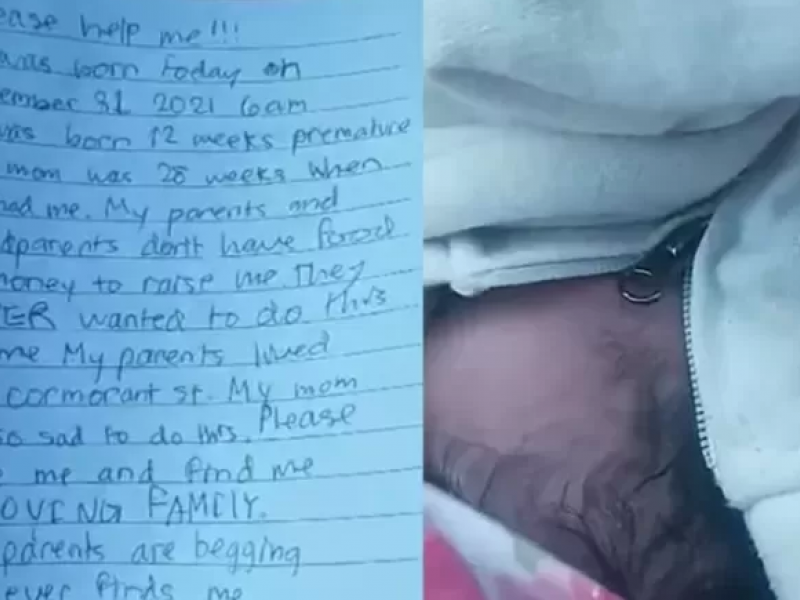 ease help me!!!
was born today on
ember 31 2021 6am
was born 12 weeks premature
mom was 28 weeks when
had me. My parents and
dparents dont have food
money to raise me They
ER wanted to do this
me My parents lived
cormorant st. My mom
so sad to do this. Please
me and find me
OVING FAMILY.
parents are begging
ever finds me